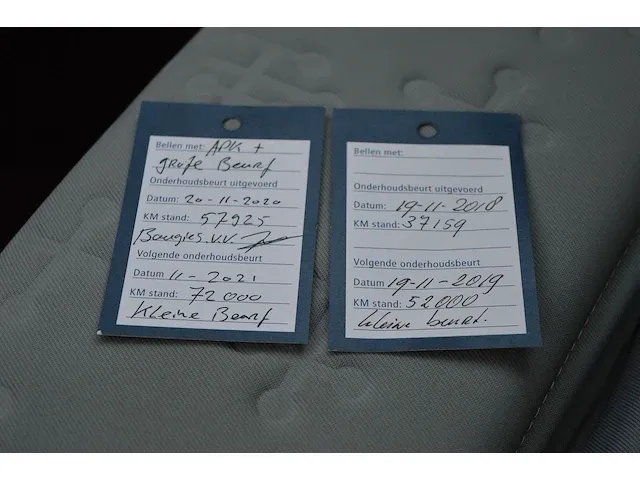 Bellen met: APK +
grote Beurt
Onderhoudsbeurt uitgevoerd
Datum: 20-11-2020
KM stand: 57925
Bougies V.V.
Volgende onderhoudsbeurt
Datum 11-2021
KM stand: 72000
Kleine Beurt
Bellen met:
Onderhoudsbeurt uitgevoerd
Datum: 19-11-2018
KM stand: 37159
Volgende onderhoudsbeurt
Datum 19-11-2019
KM stand: 52000
kleine beurt.